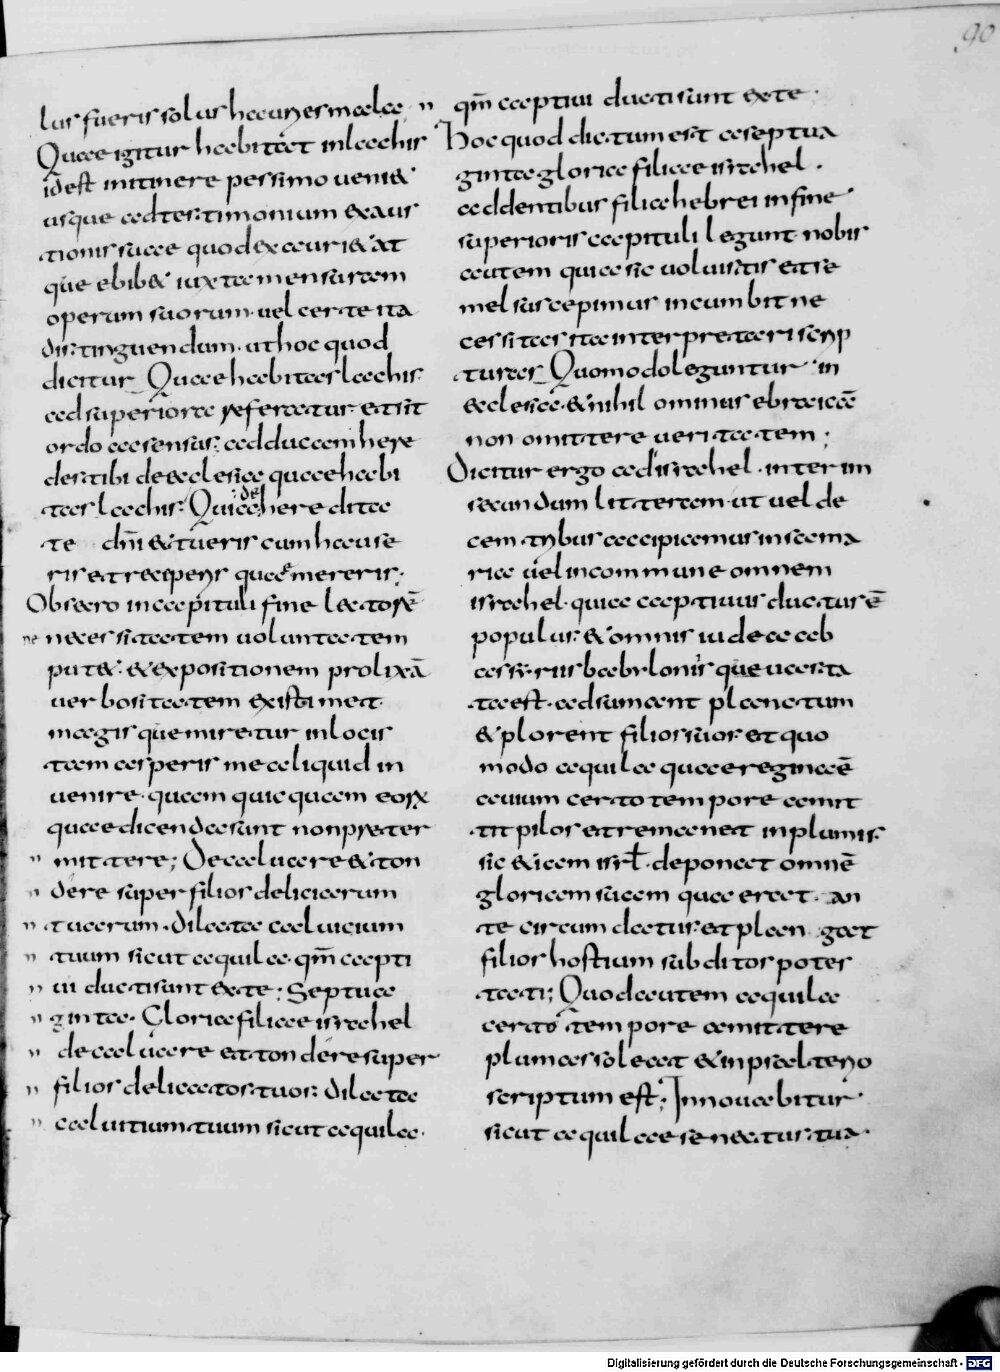 90
lus fueris solus hauries mala;
Quae igitur habitat in lachis
id est in itinere pessimo ueni&
usque ad testimonium exaus
tionis suae quod exauri& at
que ebib& iuxta mensuram
operum suorum. uel certe ita
distinguendum. ut hoc quod
dicitur Quae habitas lachis
ad superiora referatur et sit
ordo ac sensus; adducam here
des tibi de aeclesia quae habi
tas lachis; Quia de here dita
te dni & tueris cum hause
ris et recipens quae mereris;
Obsecro in capituli fine lectorē
ne necessitatem uoluntatem
put&. & expositionem prolixā
uerbositatem existimet
magis que miretur in locis
tam asperis me aliquid in
uenire. quam quicquam eorū
quae dicenda sunt non praeter
" mittere; Decaluare & ton
" dere super filios deliciarum
" tuarum. dilata caluicium
" tuum sicut aquila. qm̄ capti
" ui ducti sunt ex te; Septua
" ginta. Gloriae filiae israhel
" decaluare et tondere super
" filios delicatos tuos; dilata
" caluitium tuum sicut aquila.
" qm̄ captiui ducti sunt ex te;
Hoc quod dictum est a septua
ginta gloriae filiae israhel.
addentibus filia hebrei in fine
superioris capituli legunt nobis
autem quia sic uoluistis et se
mel suscepimus incumbit ne
cessitas ita interpretari scrip
turas Quomodo leguntur in
aeclesia. & nihilominus ebraicāē
non omittere ueritatem;
Dicitur ergo ad israhel. interim
secundum litteram. ut uel de
cem tribus accipiamus in sama
ria uel in commune omnem
israhel. quia captiuus ductus ē
populus; & omnis iudaea ab
assiriis babylonisque uasta
ta est. adsumant planctum
& plorent filios suos. et quo
modo aquila quae regina ē
auium certo tempore amit
tit pilos et remanet in plumis.
sic & iam isrł. deponat omnē
gloriam suam quae erat. an
te circumdatus. et plangat
filios hostium subditos potes
tati; Quod autem aquila
certo tempore amittere
plumas soleat & in psalterio
scriptum est; Innouabitur
sicut aquilae senectus tua.
Digitalisierung gefördert durch die Deutsche Forschungsgemeinschaft - DFG